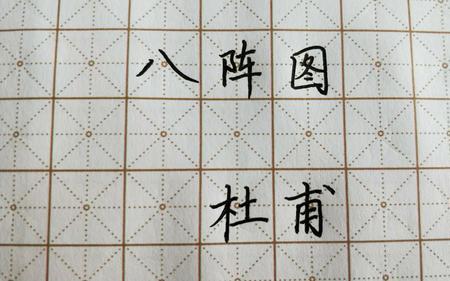 八阵图
杜甫